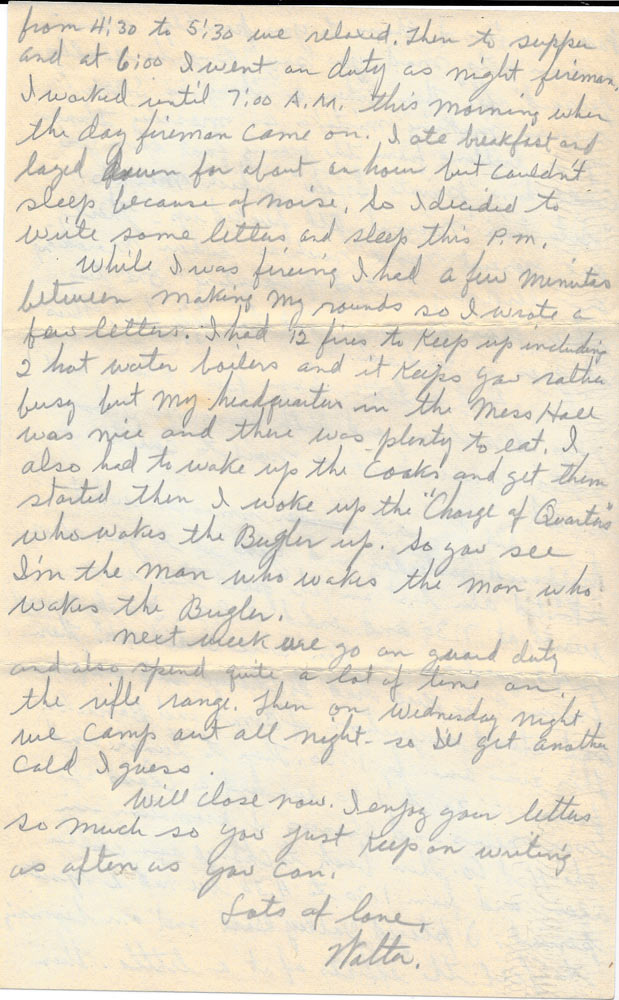 from 4:30 to 5:30 we relaxed. Then to supper
and at 6:00 I went on duty as night fireman.
I worked until 7:00 A.M. this morning when
the day fireman came on. I ate breakfast and
layed down for about an hour but couldn't
sleep because of noise. So I decided to
write some letters and sleep this P.M.
While I was fireing I had a few minutes
between making my rounds so I wrote a
few letters. I had 12 fires to keep up including
2 hot water boilers and it keeps you rather
busy but my headquarters in the Mess Hall
was nice and there was plenty to eat. I
also had to wake up the Cooks and get them
started then I woke up the "Charge of Quarters"
who wakes the Bugler up. So you see
I'm the man who wakes the man who
wakes the Bugler.
Next week we go on guard duty
and also spend quite a lot of time on
the rifle range. Then on Wednesday night
we camp out all night - so I'll get another
cold I guess.
Will close now. I enjoy your letters
so much so you just keep on writing
as often as you can.
Lots of love,
Walter.